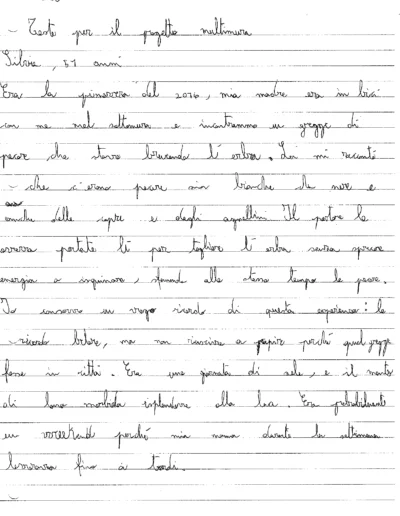 - Testo per il progetto multimura
Silvia, 57 anni
Era la primavera del 2016, mia madre era in bici
con me nel sottomura e incontrammo un gregge di
pecore che stava brucando l'erba. Lei mi raccontò
che c'erano pecore sia bianche che nere e
anche delle capre e degli agnellini. Il pastore le
aveva portate lì per togliere l'erba senza sprecare
energia o inquinare, sfamando allo stesso tempo le pecore.
Io conservo un vago ricordo di questa esperienza: le
ricordo belare, ma non riuscivo a capire perché quel gregge
fosse in città. Era una giornata di sole, e il manto
di lana morbida risplendeva alla luce. Era probabilmente
un weekend perché mia mamma durante la settimana
lavorava fino a tardi.